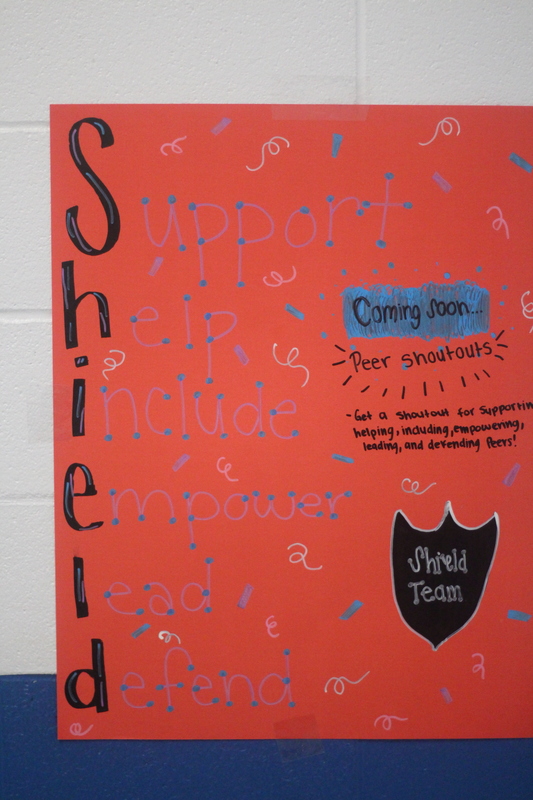 Support
help
include
empower
lead
defend
Coming soon...
Peer shoutouts
- Get a shoutout for supportin
helping, including, empowering,
leading, and defending peers!
Shield
Team